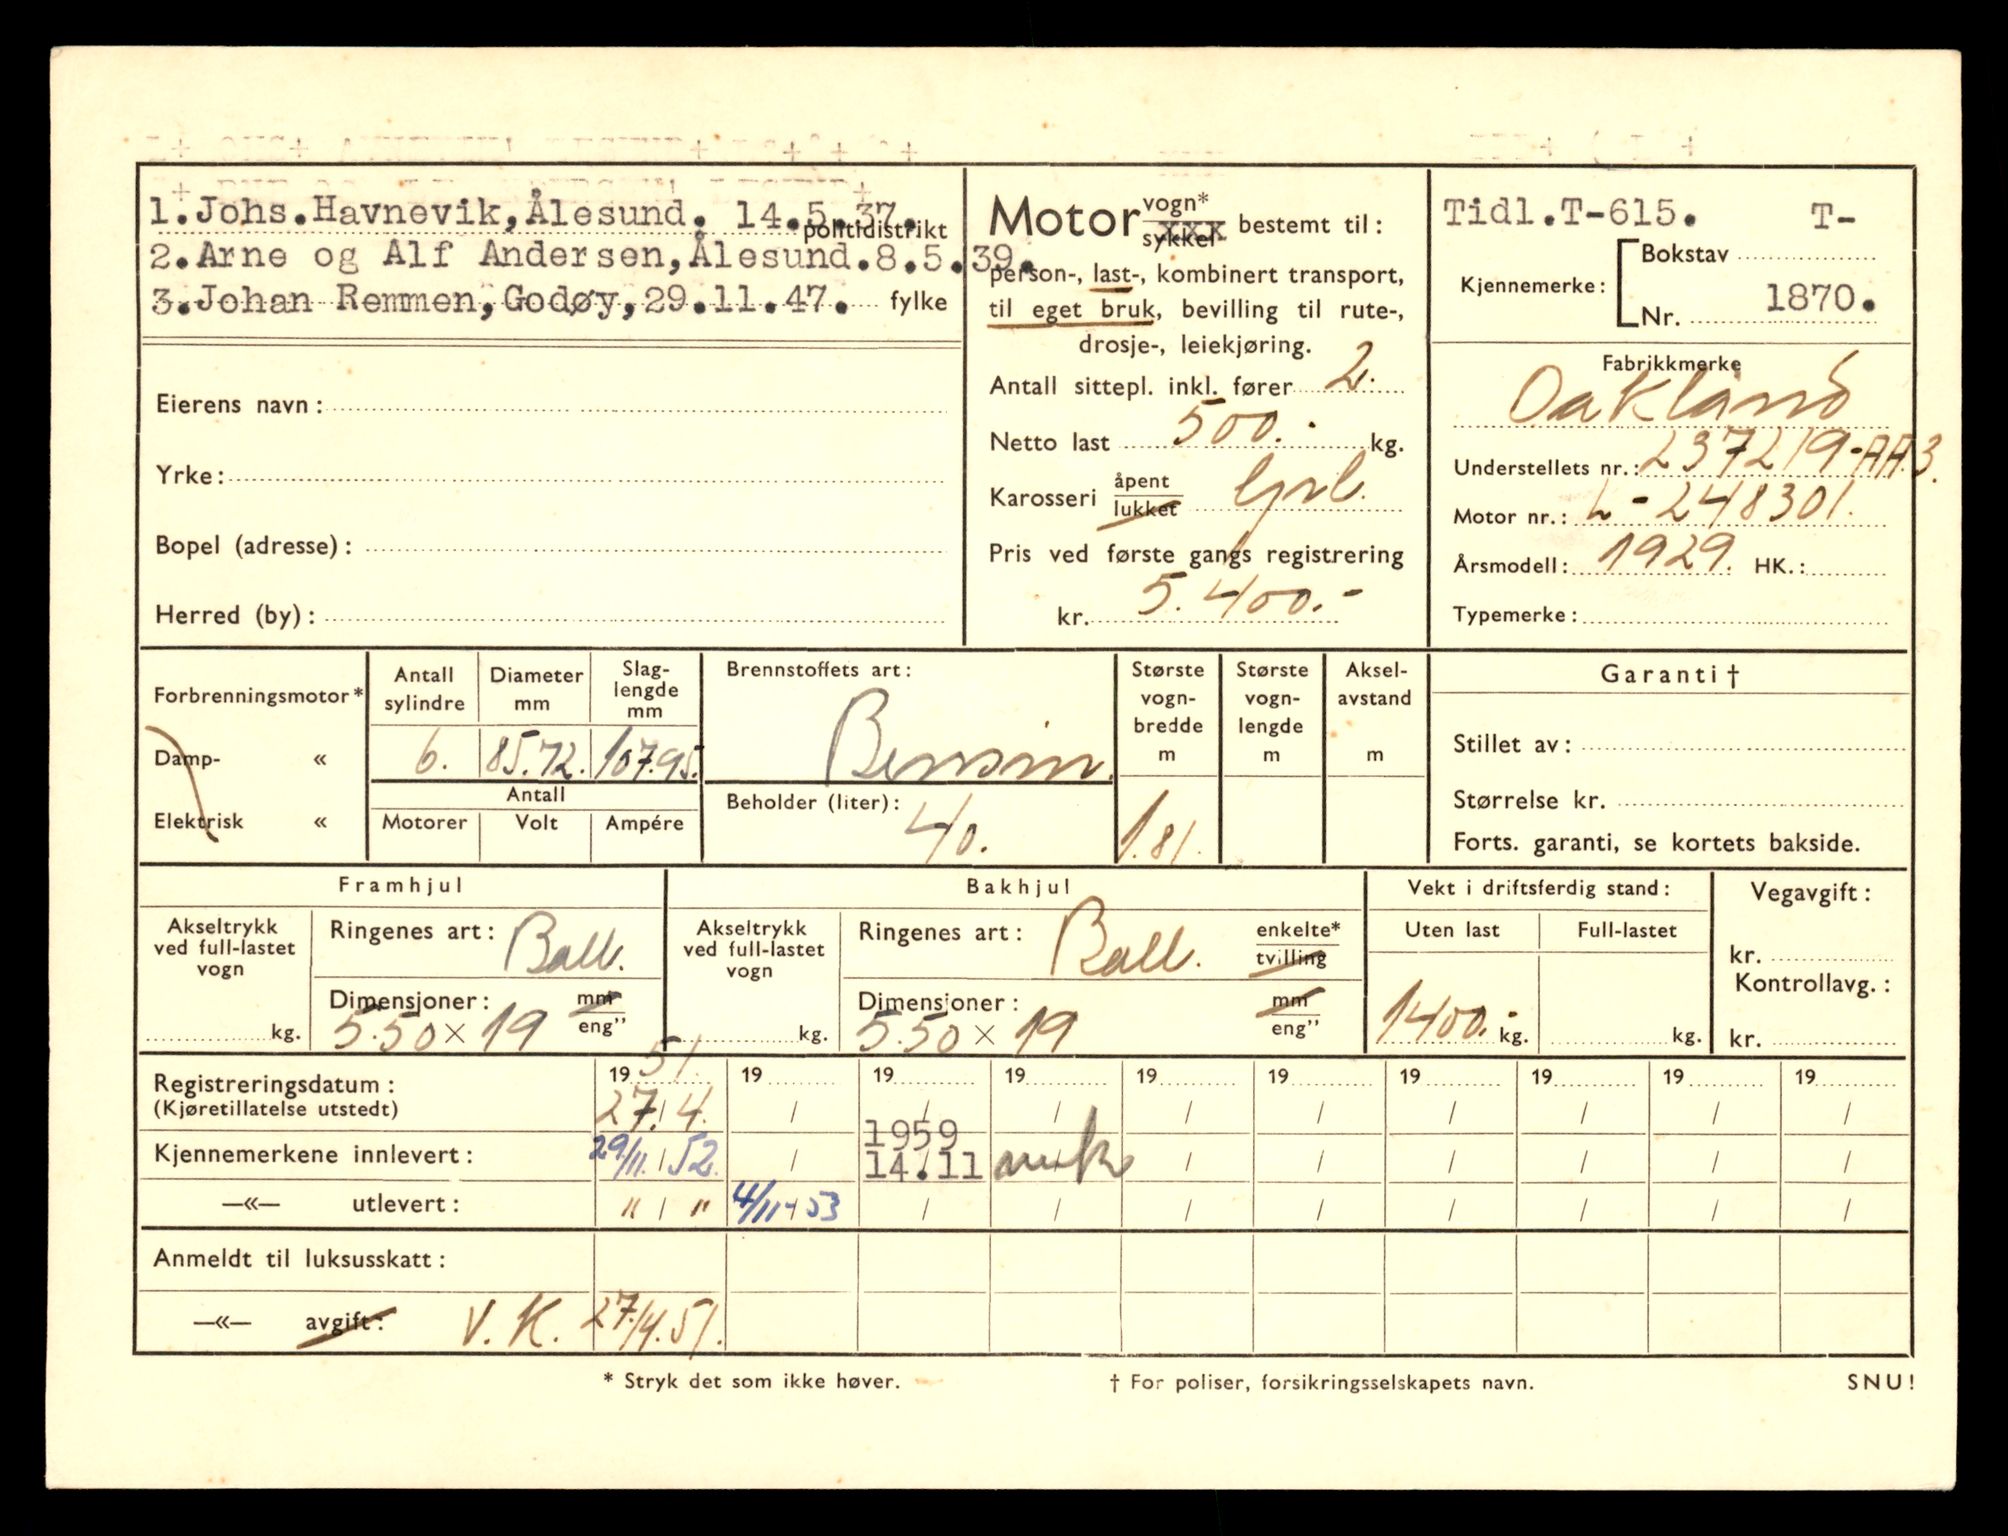 1. Johs. Havnevik, Ålesund. 14.5.37.
politidistrikt
2. Arne og Alf Andersen, Ålesund. 8.5.39.
3. Johan Remmen, Godøy, 29.11.47. fylke
Eierens navn :
Yrke :
Bopel (adresse) :
Herred (by) :
Motor vogn* sykkel xxx bestemt til :
person-, last-, kombinert transport,
til eget bruk, bevilling til rute-,
drosje-, leiekjøring.
Antall sittepl. inkl. fører 2.
Netto last 500.- kg.
Karosseri åpent lukket
Pris ved første gangs registrering
kr. 5.400.-
Tidl. T-615. T-
Kjennemerke : Bokstav
Nr. 1870.
Fabrikkmerke
Oakland
Understellets nr. : 237219-AA.3.
Motor nr. : L-248301.
Årsmodell : 1929. HK. :
Typemerke :
Forbrenningsmotor*
Damp- «
Elektrisk «
Antall sylindre
6.
Diameter mm
85.72.
Slag-lengde mm
107.95.
Antall
Motorer Volt Ampére
Brennstoffets art :
Bensin.
Beholder (liter) :
40.
Største vogn-bredde m
1.81.
Største vogn-lengde m
Aksel-avstand m
Garanti †
Stillet av :
Størrelse kr.
Forts. garanti, se kortets bakside.
Framhjul
Akseltrykk ved full-lastet vogn
kg.
Ringenes art : Ball.
Dimensjoner : mm eng”
5.50 × 19
Bakhjul
Akseltrykk ved full-lastet vogn
kg.
Ringenes art : Ball. enkelte* tvilling
Dimensjoner : mm eng”
5.50 × 19
Vekt i driftsferdig stand :
Uten last Full-lastet
1400.- kg. kg.
Vegavgift :
kr.
Kontrollavg. :
kr.
Registreringsdatum : 19 51. 19 19 19 19 19 19 19 19 19
(Kjøretillatelse utstedt) 27./4. / / / / / / / / /
1959
Kjennemerkene innlevert : 29/11. / 52. / 14.11 / / / / / /
—«— utlevert : " / " 4/11-53 / / / / / / / /
Anmeldt til luksusskatt :
—«— avgift : V. K. 27./4.51.
* Stryk det som ikke høver.
† For poliser, forsikringsselskapets navn.
SNU!